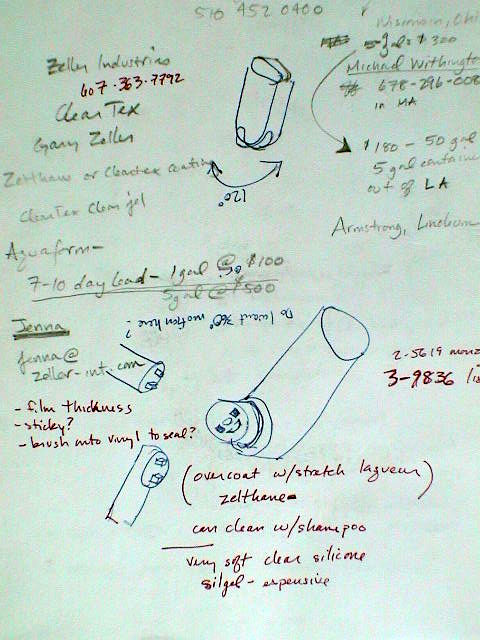 510 452 0400
Wisconsin, Ohi
5 gals $300
Zeller Industries
607·363·7792
ClearTex
Gary Zeller
Zelthane or Cleartex coating
ClearTex Clear gel
Michael Withington
678-296-008
in MA
$180 - 50 gal
5 gal container
out of LA
120°
Armstrong, Linoleum
Aquaform -
7-10 day lead - 1 gal @ $100
5 gal @ $500
Do I want 360° motion here?
Jenna
jenna@
zeller-int.com
2-5619
3-9836
- film thickness
- sticky?
- brush onto vinyl to seal?
(overcoat w/stretch laqueur
zelthane)
can clean w/shampoo
very soft clear silicone
silgel - expensive